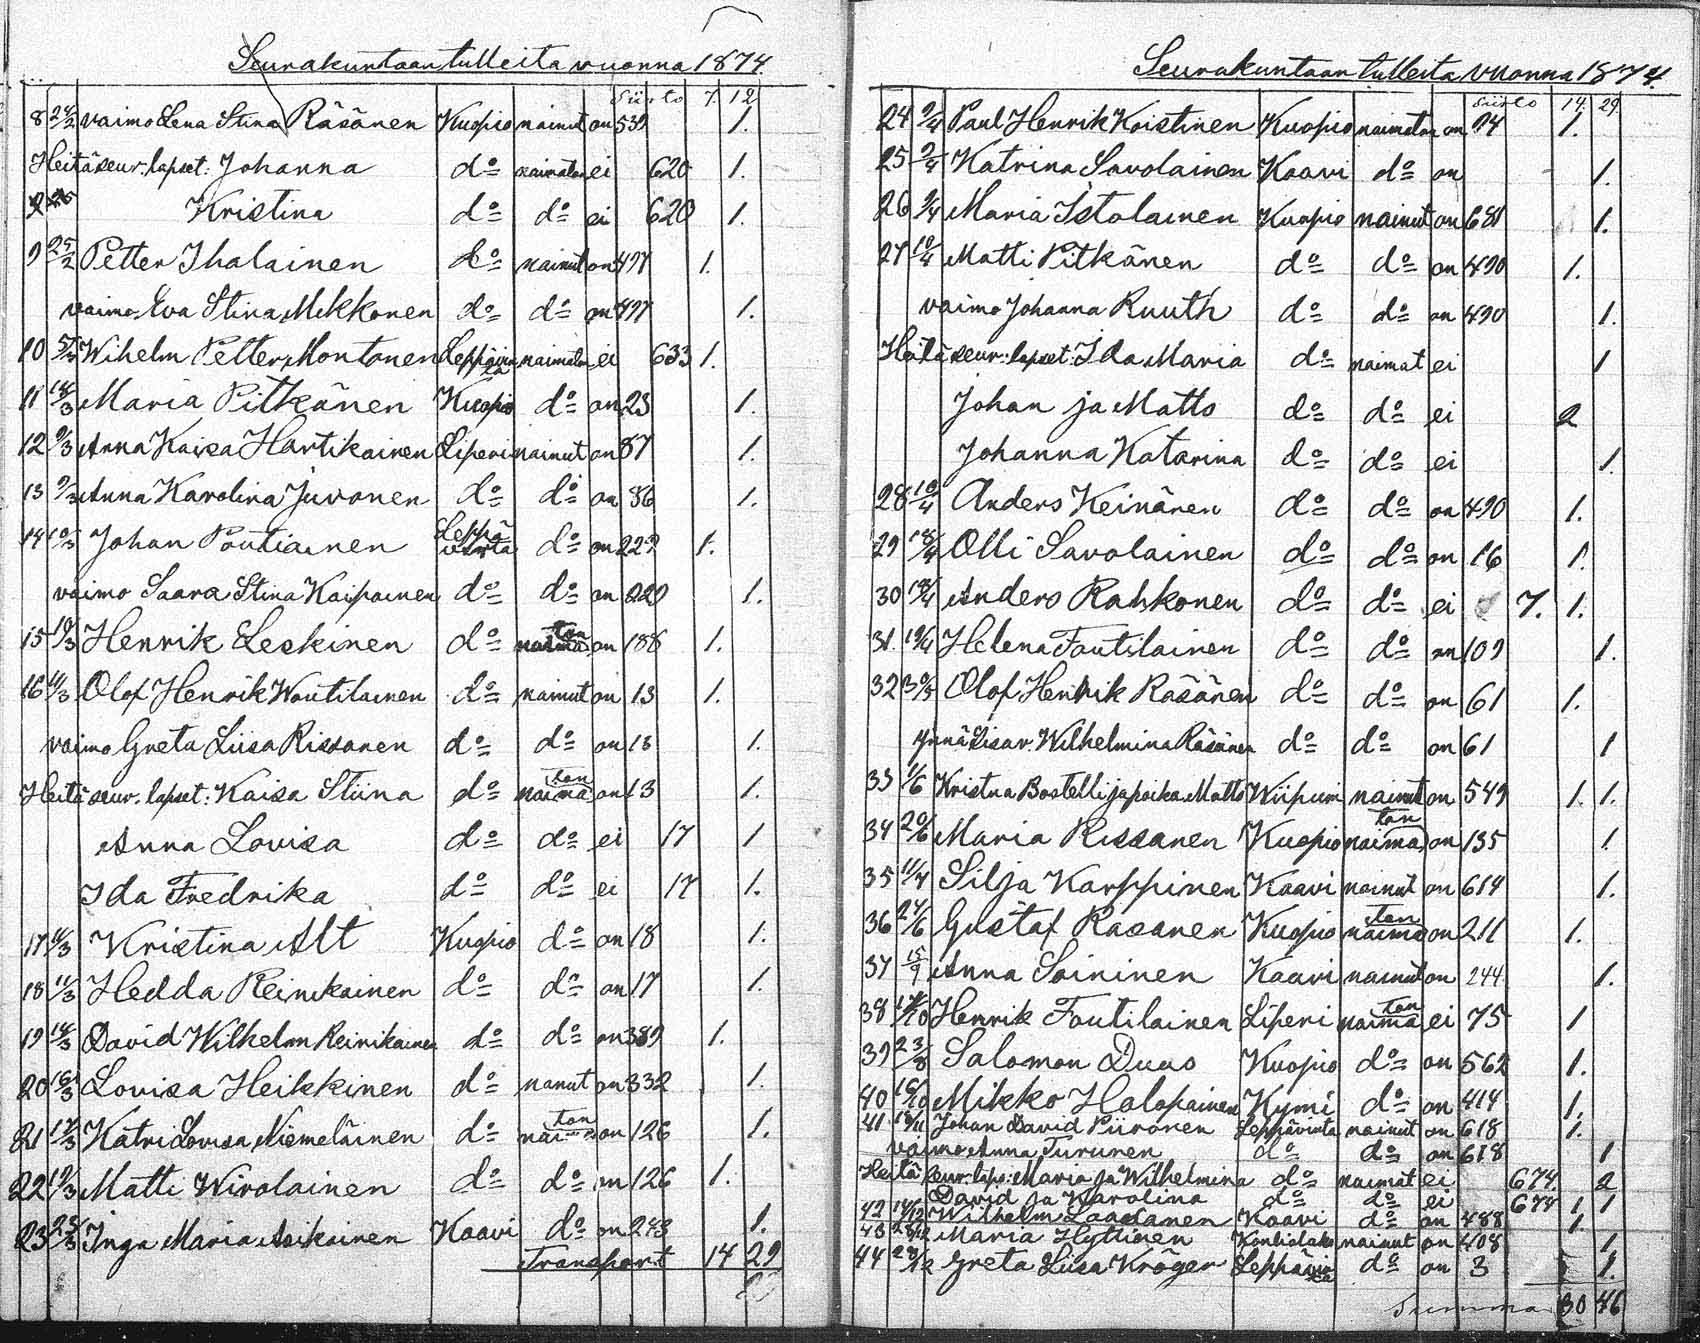 Seurakuntaan tulleita vuonna 1874.
Siirto 7. 12
8 24/2 vaimo Lena Stina Räsänen Kuopio nainut on 539 1.
Heitä seur. lapset: Johanna do naimaton ei 620 1.
Kristina do do ei 620 1.
9 25/2 Petter Ihalainen do nainut on 497 1.
vaimo Eva Stina Mikkonen do do on 497 1.
10 5/3 Wihelm Petter Montonen naimaton ei 633 1.
11 18/3 Maria Pitkänen Kuopio do on 23 1.
12 9/3 Anna Kaisa Hartikainen Liperi nainut on 87 1.
13 9/3 Anna Karolina Juvonen do do on 86 1.
14 10/3 Johan Poutiainen Leppävirta do on 229 1.
vaimo Saara Stina Kaipainen do do on 229 1.
15 10/3 Henrik Leskinen do naimaton on 188 1.
16 11/3 Olof Henrik Woutilainen do nainut on 13 1.
vaimo Greta Liisa Rissanen do do on 13 1.
Heitä seur. lapset: Kaisa Stiina do naimaton on 13 1.
Anna Lovisa do do ei 17 1
Ida Fredrika do do ei 17 1.
17 11/3 Kristina Alt Kuopio do on 18 1.
18 11/3 Hedda Reinikainen do do on 17 1.
19 18/3 David Wilhelm Reinikainen do do on 389 1.
20 16/3 Lovisa Heikkinen do nanut on 332 1.
21 17/3 Katri Lovisa Niemeläinen do naimaton on 126 1.
22 19/3 Matti Wirolainen do do on 126 1.
23 23/3 Inga Maria Asikainen Kaavi do on 243 1.
Transport 14 29
Seurakuntaan tulleita vuonna 1874.
Siirto 14. 29
24 9/4 Paul Henrik Koistinen Kuopio naimaton on 94 1.
25 9/4 Katrina Savolainen Kaavi do on 1.
26 9/4 Maria Istolainen Kuopio nainut on 681 1.
27 10/4 Matti Pitkänen do do on 490 1.
vaimo Johanna Ruuth do do on 490 1.
Heitä seur: lapset: Ida Maria do naimat ei 1
Johan ja Matts do do ei 2
Johanna Katarina do do ei 1.
28 10/4 Anders Keinänen do do on 490 1.
29 18/4 Olli Savolainen do do on 16 1.
30 18/4 Anders Rahkonen do do ei 7. 1.
31. 19/4 Helena Foutilainen do do on 109 1.
32 30/5 Olof Henrik Räsänen do do on 61 1.
ynnä sisar. Wilhelmina Räsänen do do on 61 1
33 1/6 Kristna Bostelli ja poika Matts Wiipuri nainut on 549 1. 1.
34 20/6 Maria Rissanen Kuopio naimaton on 135 1.
35 11/7 Silja Karppinen Kaavi nainut on 614 1.
36 27/6 Gustaf Räsänen Kuopio naimaton on 211 1.
37 15/9 Anna Soininen Kaavi nainut on 244 1.
38 Henrik Foutilainen Liperi naimaton ei 75 1
39 23/8 Salomon Duus Kuopio do on 562 1.
40 16/10 Mikko Halopainen Kymi do on 414 1.
41 18/11 Johan David Piironen Leppävirta nainut on 618 1.
vaimo Anna Turunen do do on 618 1
Heitä seur. laps: Maria ja Wilhelmina do naimat ei 674 2
David ja Karolina do do ei 674 1 1
42 18/12 Wilhelm Laatanen Kaavi do on 488 1.
43 28/12 Maria Hyttinen Kontiolaks nainut on 408 1
44 28/12 Greta Liisa Kröger do on 3 1.
Summa 30 46